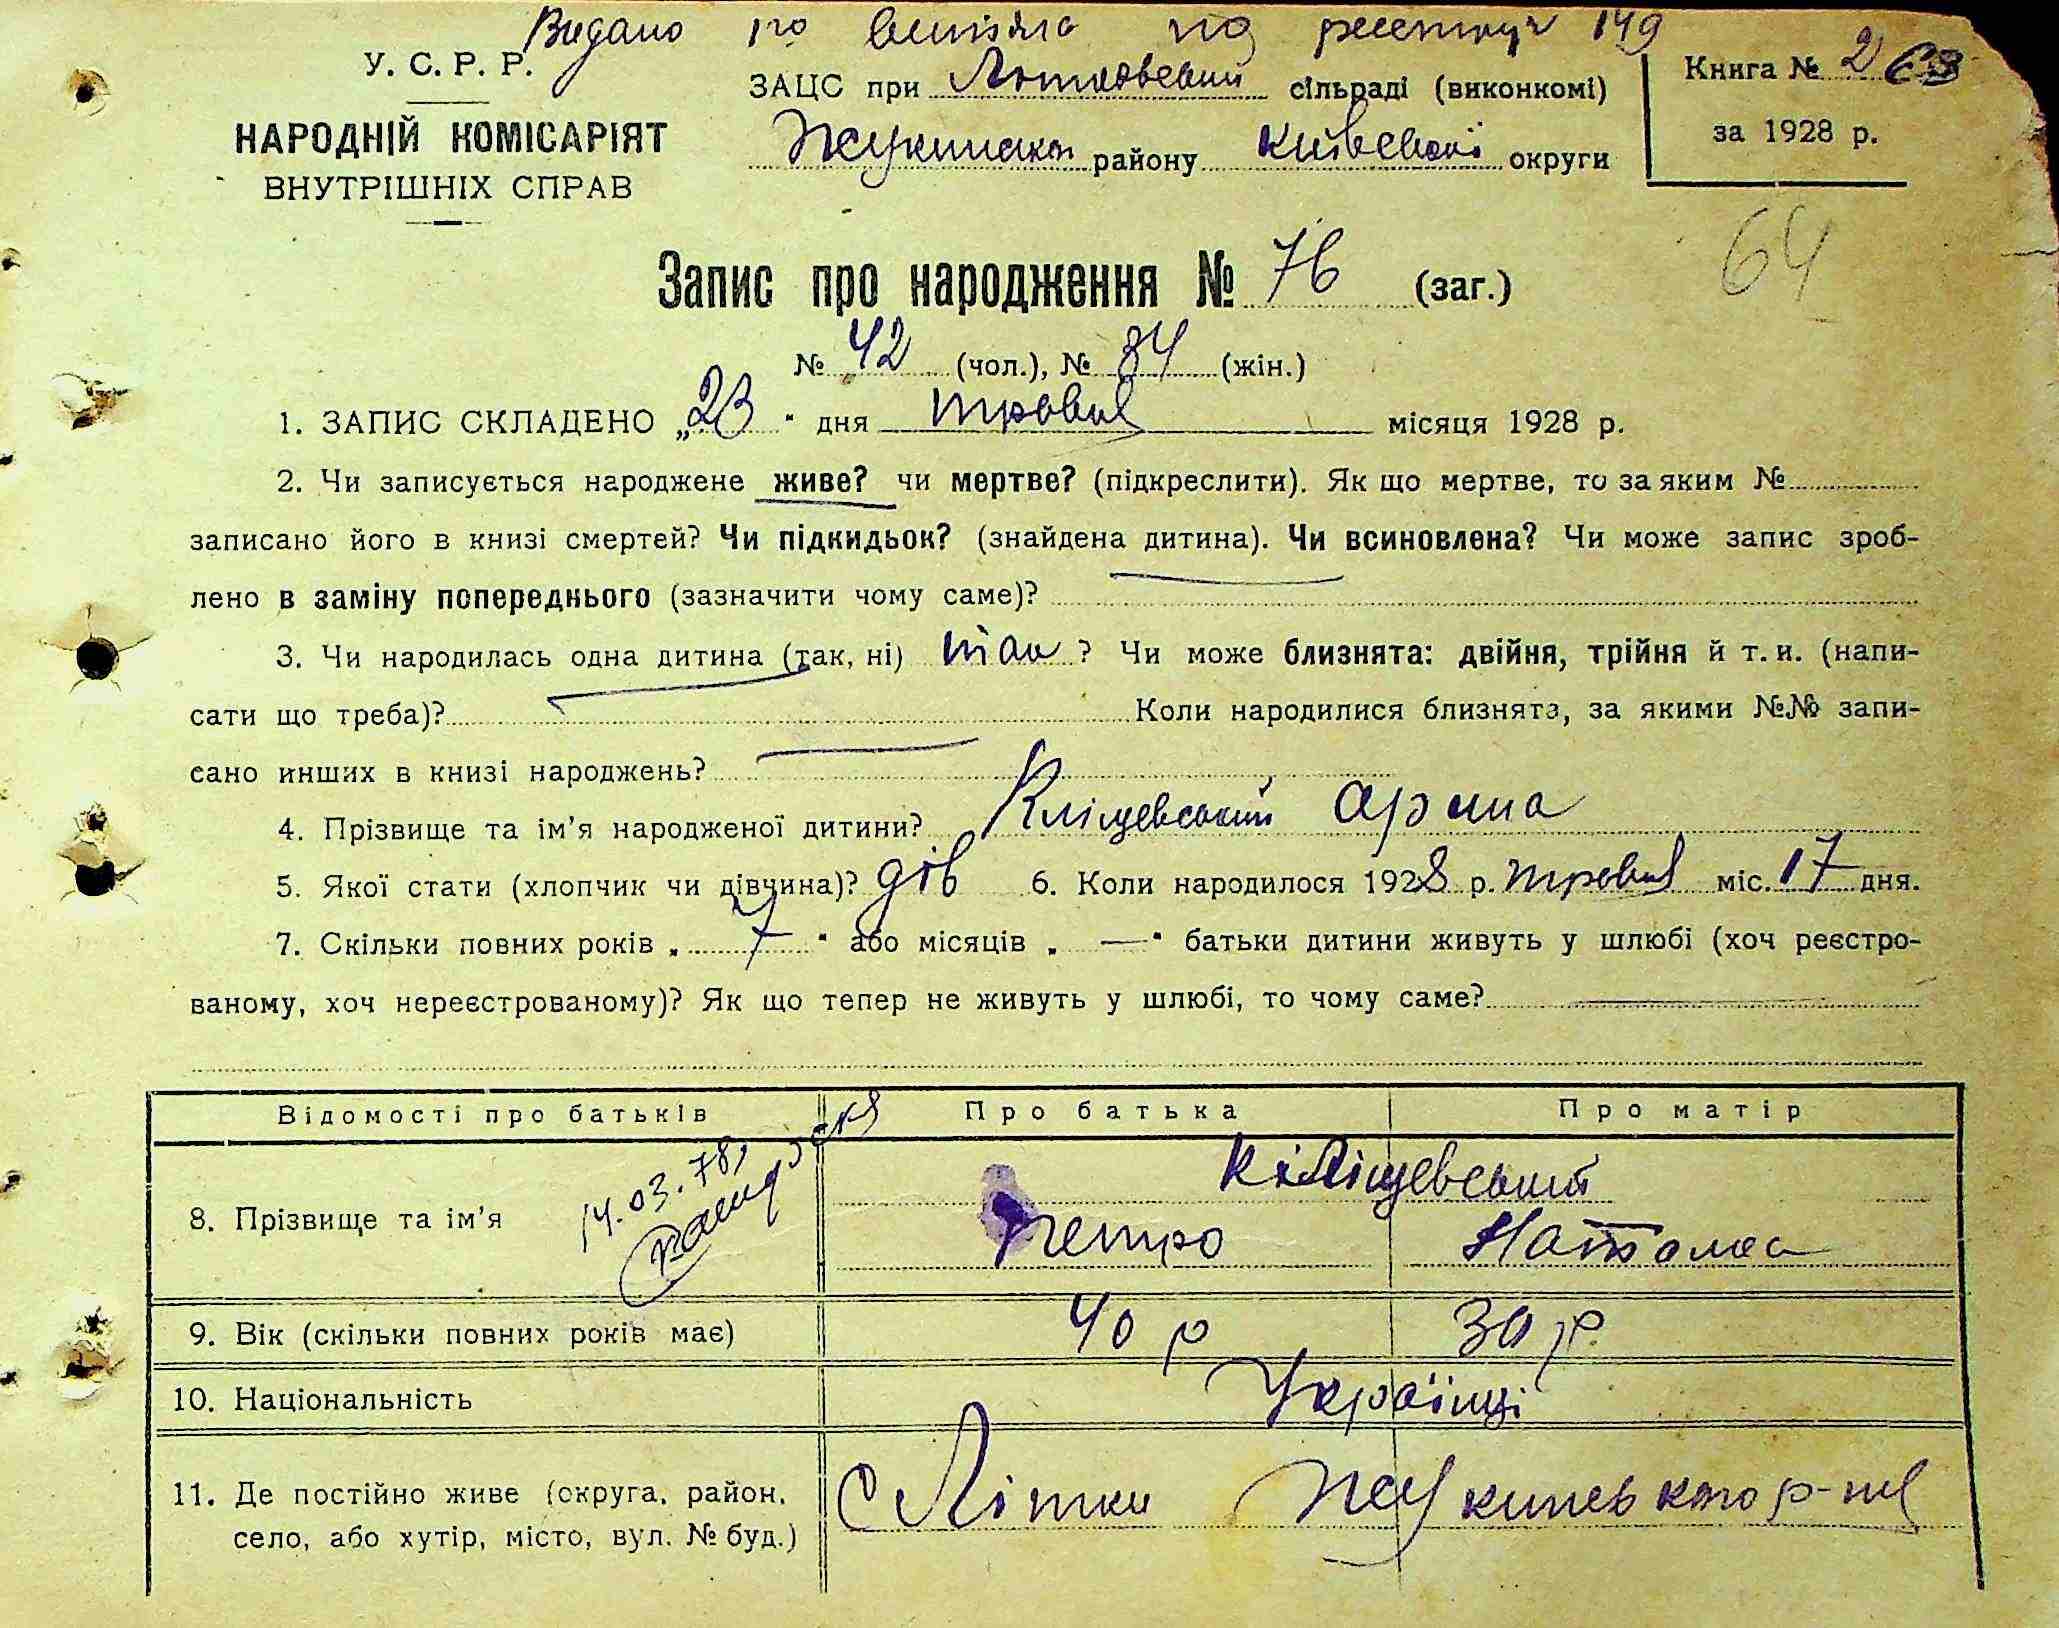 Видано по
149
У. С. Р. Р.
НАРОДНІЙ КОМІСАРІЯТ
ВНУТРІШНІХ СПРАВ
ЗАЦС при Літковський сільраді (виконкомі)
району Київської округи
Книга № 2
за 1928 р.
64
Запис про народження № 76 (заг.)
№ 42 (чол.), № 34 (жін.)
1. ЗАПИС СКЛАДЕНО „23" дня травня місяця 1928 р.
2. Чи записується народжене живе? чи мертве? (підкреслити). Як що мертве, то за яким №
записано його в книзі смертей? Чи підкидьок? (знайдена дитина). Чи всиновлена? Чи може запис зроб-
лено в заміну попереднього (зазначити чому саме)?
3. Чи народилась одна дитина (так, ні) так ? Чи може близнята: двійня, трійня й т. и. (напи-
сати що треба)? Коли народилися близнята, за якими №№ запи-
сано инших в книзі народжень?
4. Прізвище та ім'я народженої дитини? Кліщевський Арина
5. Якої стати (хлопчик чи дівчина)? дів 6. Коли народилося 1928 р. травня міс. 17 дня.
7. Скільки повних років „ 7 " або місяців „ — " батьки дитини живуть у шлюбі (хоч реєстро-
ваному, хоч нереєстрованому)? Як що тепер не живуть у шлюбі, то чому саме?
Відомості про батьків Про батька Про матір
8. Прізвище та ім'я 14.03.78 Кліщевський
Петро Наталка
9. Вік (скільки повних років має) 40 р 30 р.
10. Національність Українці
11. Де постійно живе (округа, район,
село, або хутір, місто, вул. № буд.) с Літки Жукинського р-ну